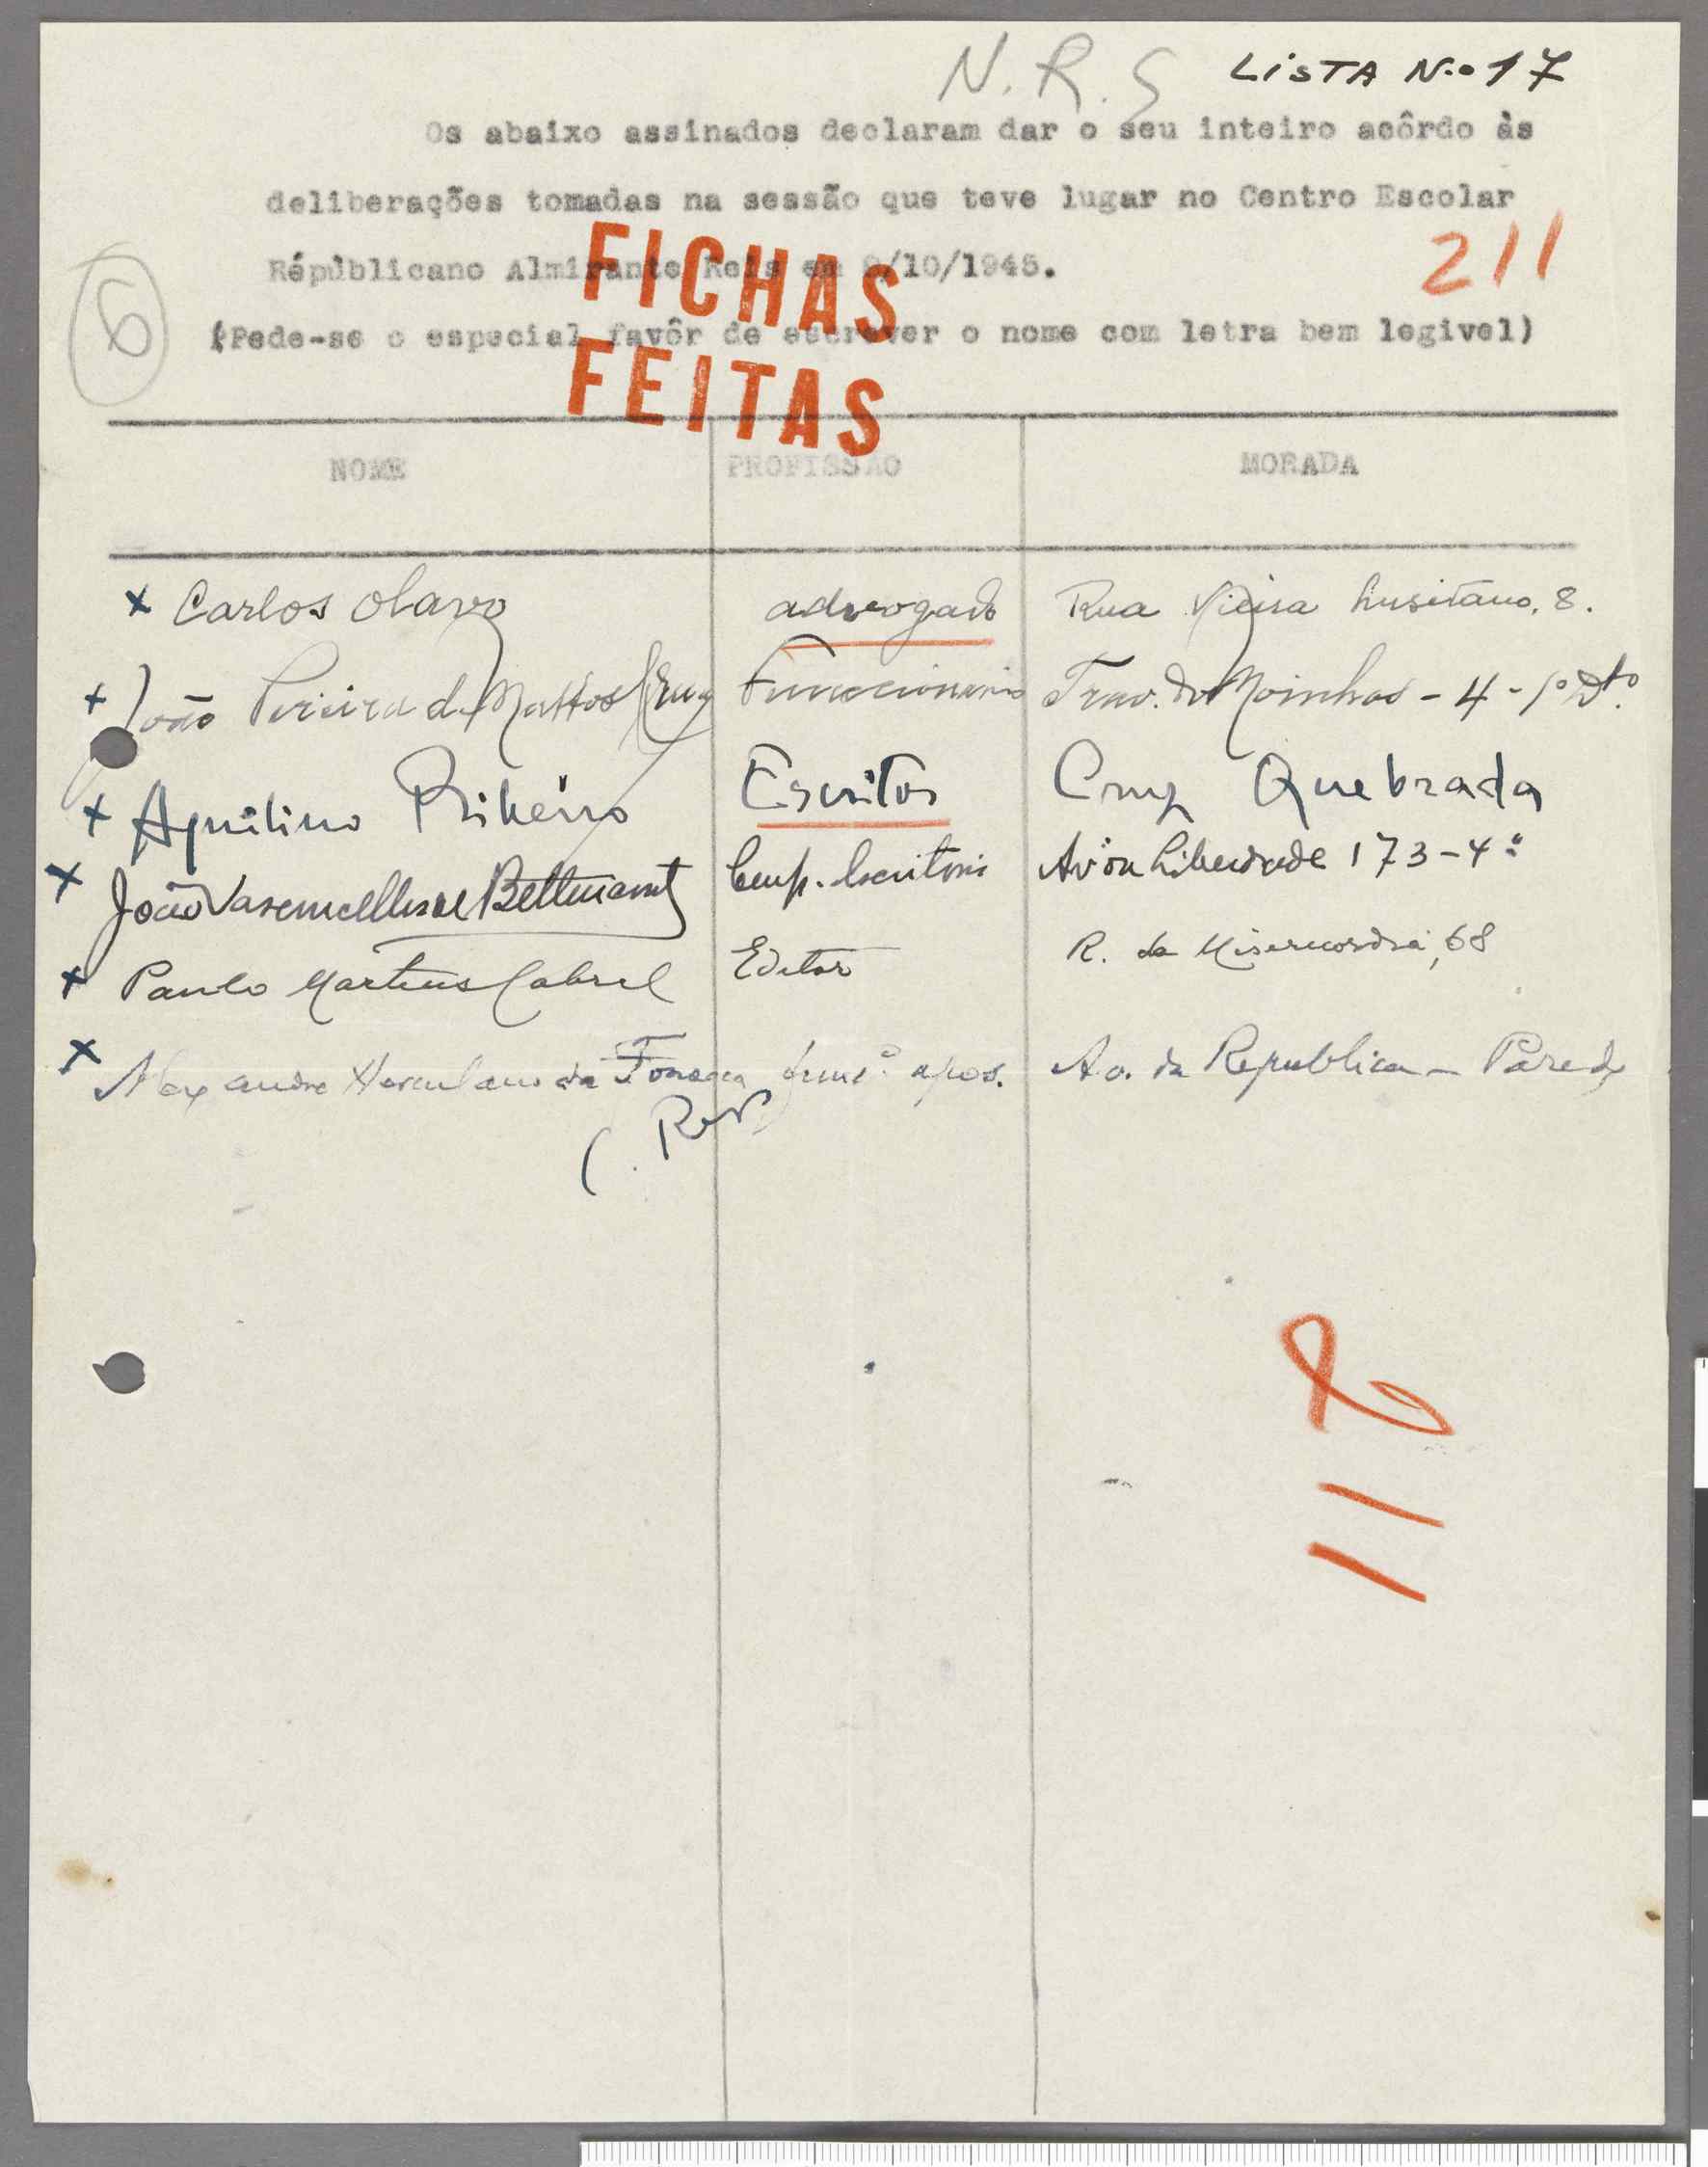 N. R. S LISTA N.o 17
Os abaixo assinados declaram dar o seu inteiro acôrdo às
deliberações tomadas na sessão que teve lugar no Centro Escolar
211
Répúblicano Almirante Reis em 8/10/1945.
FICHAS
6
(Pede-se o especial favôr de escrever o nome com letra bem legivel)
FEITAS
NOME PROFISSÃO MORADA
x Carlos Olavo advogado Rua Vieira Lusitano, 8.
x João Pereira de Mattos Cruz Funccionario Trav. do Moinhos - 4 - 1º Dto.
x Aquilino Ribeiro Escritor Cruz Quebrada
x João Vasconcellos Bettencourt Emp. Escritorio Av. da Liberdade 173-4º
x Paulo Martins Cabral Editor R. da Misericordia, 68
x Alexandre Herculano da Fonseca func.º apos. Av. da Republica - Parede